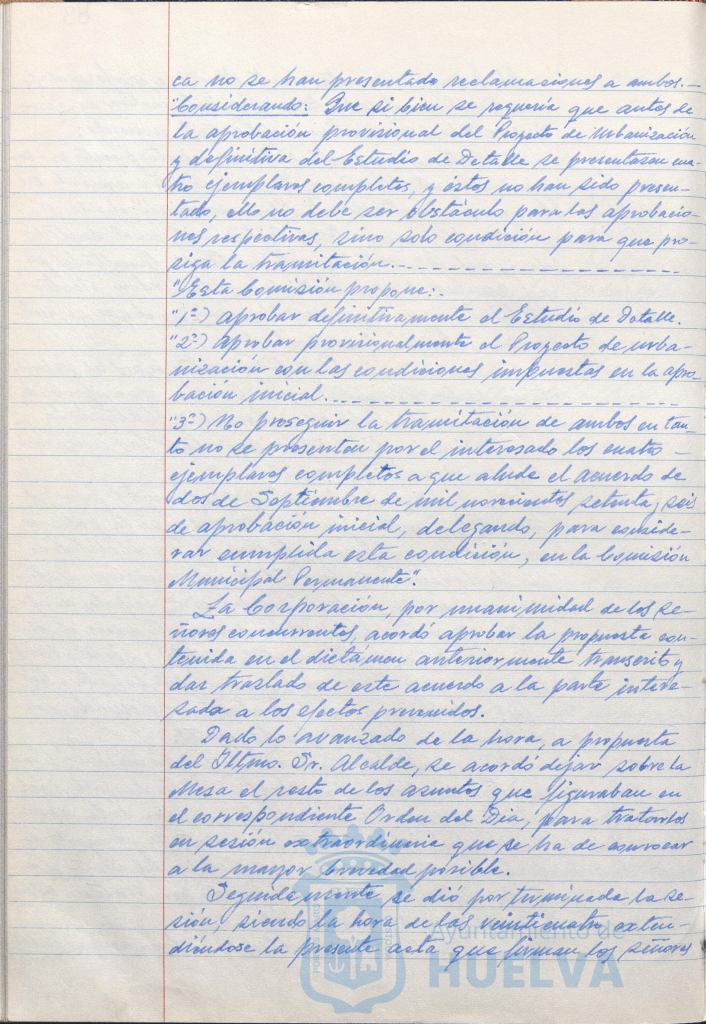 ca no se han presentado reclamaciones a ambos.—
"Considerando: Que si bien se requería que antes de
la aprobación provisional del Proyecto de Urbanización
y definitiva del Estudio de Detalle se presentasen cua-
tro ejemplares completos, y éstos no han sido presen-
tado, ello no debe ser obstáculo para las aprobacio-
nes respectivas, sino solo condición para que pro-
siga la tramitación.---------------
"Esta Comisión propone:-
"1º-) Aprobar definitivamente el Estudio de Detalle.
"2º-) Aprobar provisionalmente el Proyecto de urba-
nización con las condiciones impuestas en la apro-
bación inicial.--------------------
"3º-) No proseguir la tramitación de ambos en tan-
to no se presenten por el interesado los cuatro —
ejemplares completos a que alude el acuerdo de
dos de Septiembre de mil novecientos setenta y seis
de aprobación inicial, delegando, para conside-
rar cumplida esta condición, en la Comisión
Municipal Permanente".
La Corporación, por unanimidad de los se-
ñores concurrentes, acordó aprobar la propuesta con-
tenida en el dictámen anteriormente transcrito y
dar traslado de este acuerdo a la parte intere-
sada a los efectos prevenidos.
Dado lo avanzado de la hora, a propuesta
del Iltmo. Sr. Alcalde, se acordó dejar sobre la
Mesa el resto de los asuntos que figuraban en
el correspondiente Orden del Dia, para tratarlos
en sesión extraordinaria que se ha de convocar
a la mayor brevedad posible.
Seguidamente se dió por terminada la se-
sión, siendo la hora de las veinticuatro, exten-
diéndose la presente acta que firman los señores
Ayuntamiento de
HUELVA